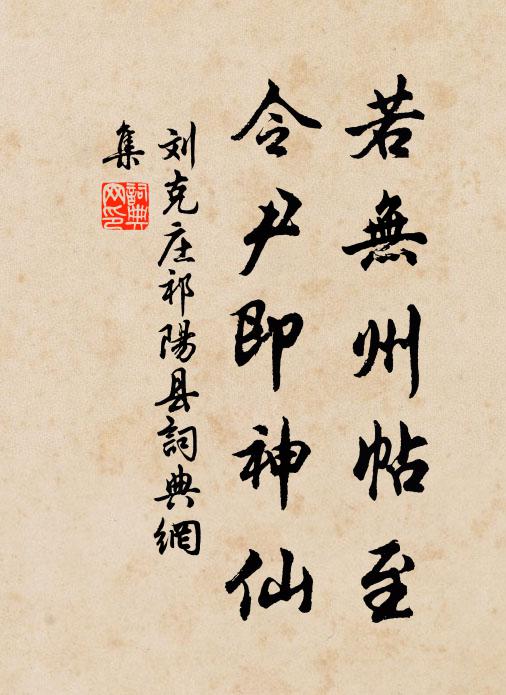 若無州帖至
令尹即神仙
刘克庄祁陽县詞典網
集
詞典网印